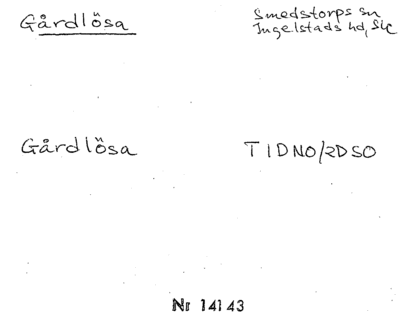 Gårdlösa
Smedstorps sn
Ingelstads hd, Sk
Gårdlösa
TIDNO/2DSO
Nr 14143